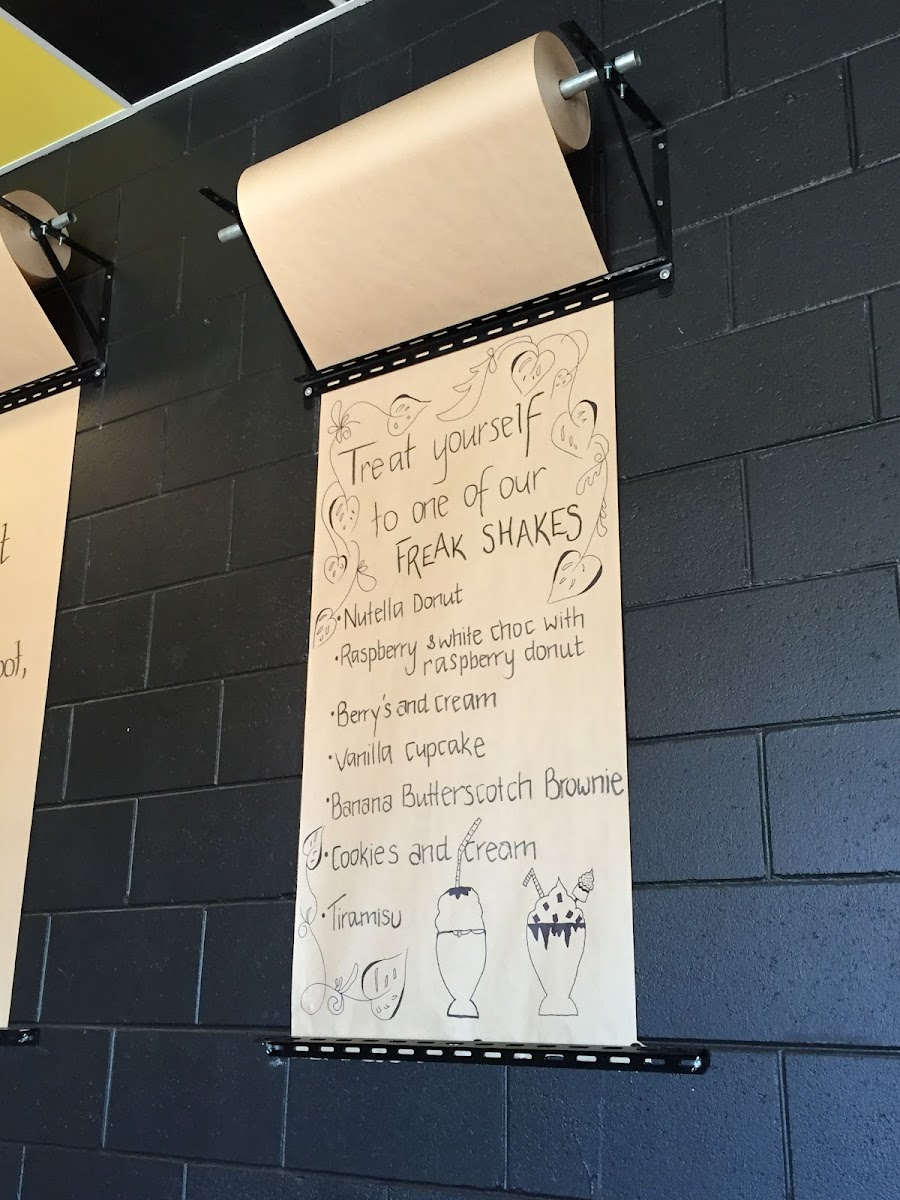 Treat yourself
to one of our
FREAK SHAKES
• Nutella Donut
• Raspberry & white choc with
raspberry donut
• Berry's and cream
• Vanilla cupcake
• Banana Butterscotch Brownie
• Cookies and cream
• Tiramisu